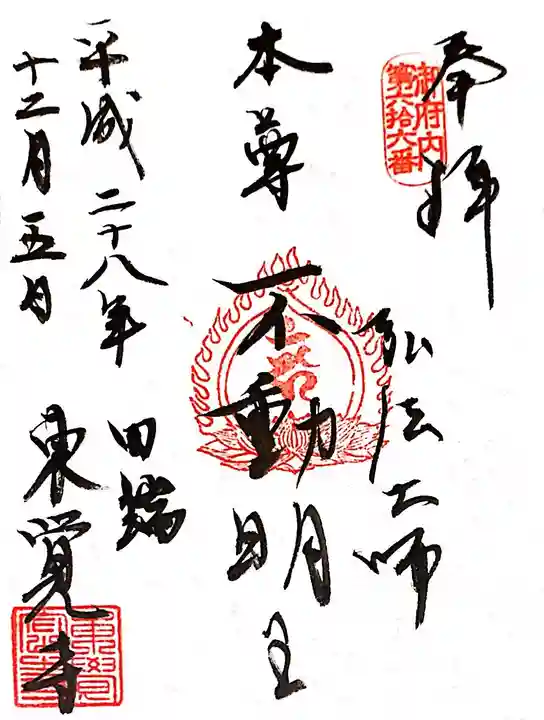 奉拝
御府内
第六拾六番
弘法大師
本尊
不動明王
平成二十八年
十二月五日
田端
東覚寺